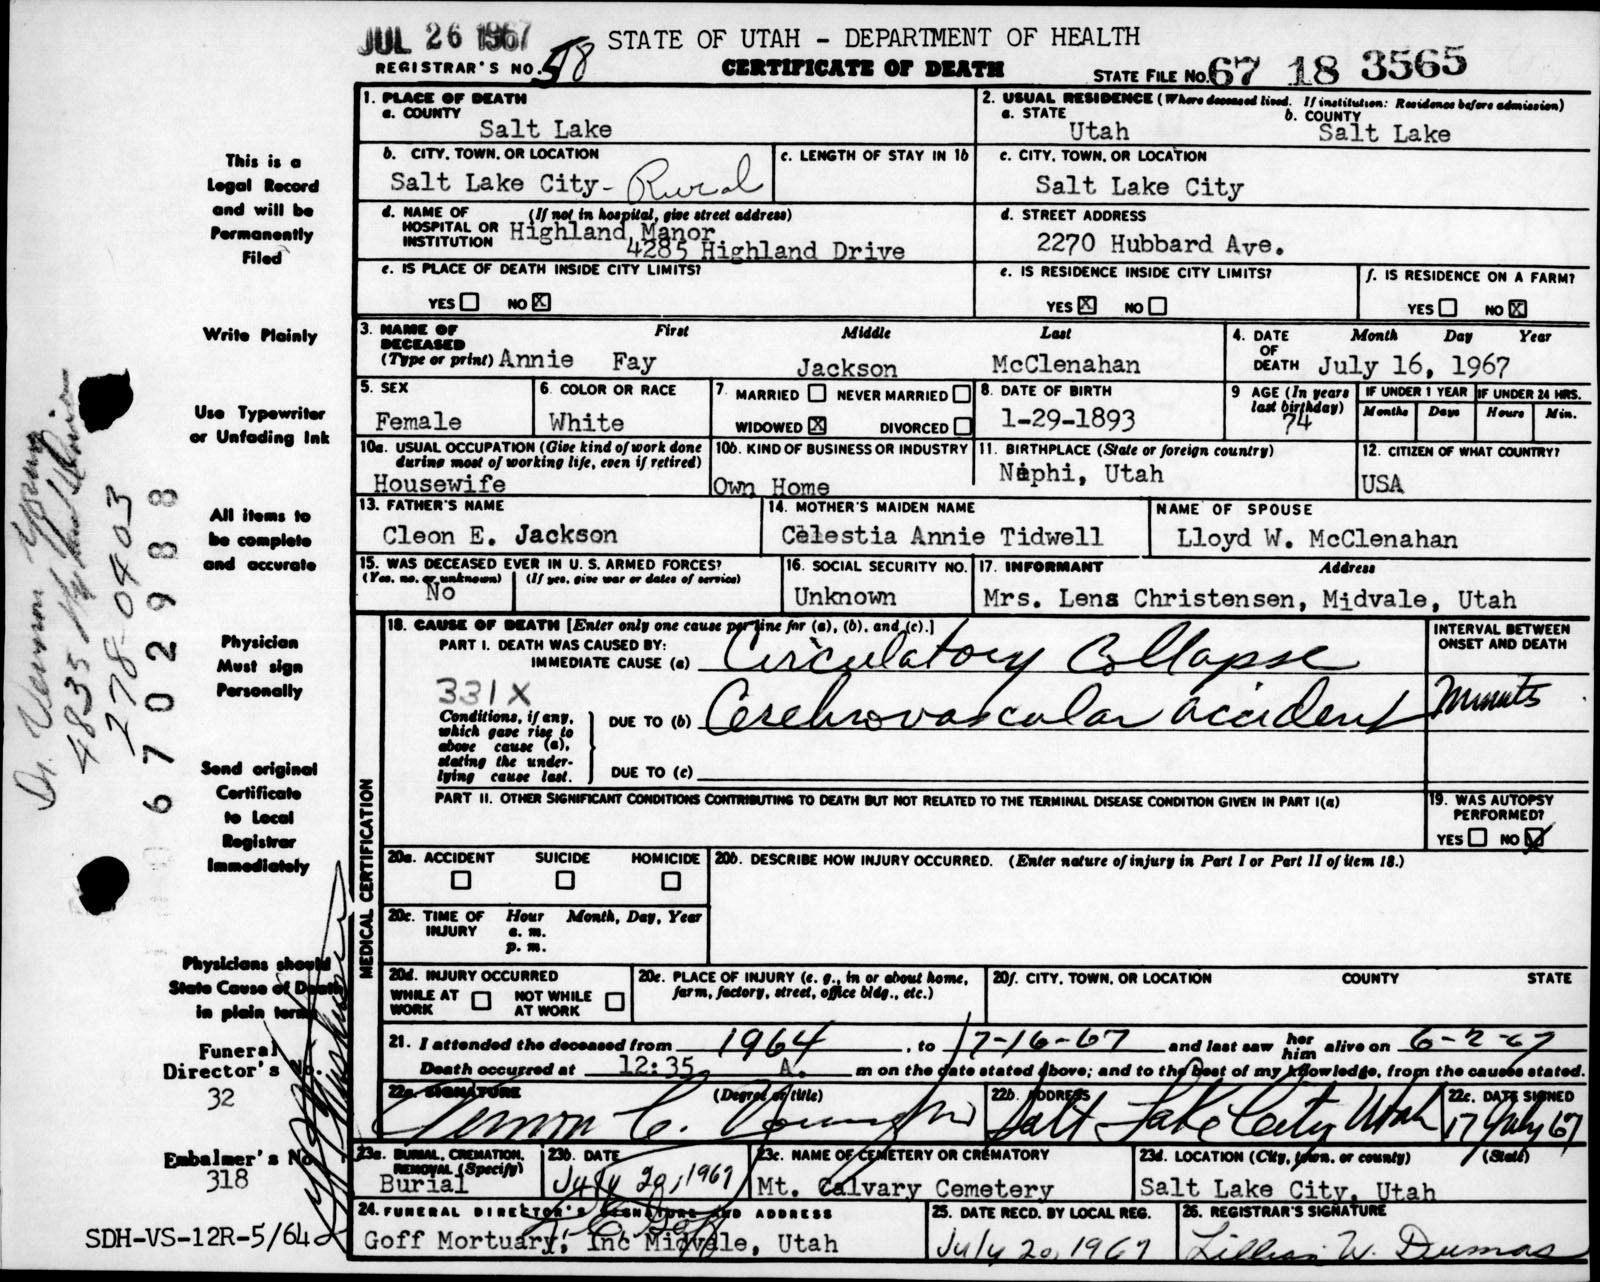 JUL 26 1967
STATE OF UTAH - DEPARTMENT OF HEALTH
REGISTRAR'S NO. 518
CERTIFICATE OF DEATH
STATE FILE NO. 67 18 3565
This is a
Legal Record
and will be
Permanently
Filed
Write Plainly
Use Typewriter
or Unfading Ink
All items to
be complete
and accurate
Physician
Must sign
Personally
Send original
Certificate
to Local
Registrar
Immediately
Physicians should
State Cause of Death
in plain terms
Funeral
Director's No.
32
Embalmer's No.
318
SDH-VS-12R-5/64
Dr. Vernon Young
4835
278-0403
67029888
1. PLACE OF DEATH
a. COUNTY
Salt Lake
2. USUAL RESIDENCE (Where deceased lived. If institution: Residence before admission)
a. STATE b. COUNTY
Utah Salt Lake
b. CITY, TOWN, OR LOCATION
Salt Lake City- Rural
c. LENGTH OF STAY IN 1b
c. CITY, TOWN, OR LOCATION
Salt Lake City
d. NAME OF HOSPITAL OR INSTITUTION (If not in hospital, give street address)
Highland Manor
4285 Highland Drive
d. STREET ADDRESS
2270 Hubbard Ave.
e. IS PLACE OF DEATH INSIDE CITY LIMITS?
YES NO X
e. IS RESIDENCE INSIDE CITY LIMITS?
YES X NO
f. IS RESIDENCE ON A FARM?
YES NO X
3. NAME OF DECEASED (Type or print) First Middle Last
Annie Fay Jackson McClenahan
4. DATE OF DEATH Month Day Year
July 16, 1967
5. SEX
Female
6. COLOR OR RACE
White
7. MARRIED NEVER MARRIED
WIDOWED X DIVORCED
8. DATE OF BIRTH
1-29-1893
9 AGE (In years last birthday)
74
IF UNDER 1 YEAR
Months Days
IF UNDER 24 HRS.
Hours Min.
10a. USUAL OCCUPATION (Give kind of work done during most of working life, even if retired)
Housewife
10b. KIND OF BUSINESS OR INDUSTRY
Own Home
11. BIRTHPLACE (State or foreign country)
Nephi, Utah
12. CITIZEN OF WHAT COUNTRY?
USA
13. FATHER'S NAME
Cleon E. Jackson
14. MOTHER'S MAIDEN NAME
Celestia Annie Tidwell
NAME OF SPOUSE
Lloyd W. McClenahan
15. WAS DECEASED EVER IN U. S. ARMED FORCES?
(Yes, no, or unknown) (If yes, give war or dates of service)
No
16. SOCIAL SECURITY NO.
Unknown
17. INFORMANT Address
Mrs. Lena Christensen, Midvale, Utah
MEDICAL CERTIFICATION
18. CAUSE OF DEATH [Enter only one cause per line for (a), (b), and (c).]
PART I. DEATH WAS CAUSED BY:
IMMEDIATE CAUSE (a) Circulatory Collapse
331X
Conditions, if any, which gave rise to above cause (a), stating the underlying cause last.
DUE TO (b) Cerebrovascular accident
DUE TO (c)
INTERVAL BETWEEN ONSET AND DEATH
Minuts
PART II. OTHER SIGNIFICANT CONDITIONS CONTRIBUTING TO DEATH BUT NOT RELATED TO THE TERMINAL DISEASE CONDITION GIVEN IN PART I(a)
19. WAS AUTOPSY PERFORMED?
YES NO
20a. ACCIDENT SUICIDE HOMICIDE
20b. DESCRIBE HOW INJURY OCCURRED. (Enter nature of injury in Part I or Part II of item 18.)
20c. TIME OF INJURY Hour Month, Day, Year
a. m.
p. m.
20d. INJURY OCCURRED
WHILE AT WORK NOT WHILE AT WORK
20e. PLACE OF INJURY (e. g., in or about home, farm, factory, street, office bldg., etc.)
20f. CITY, TOWN, OR LOCATION COUNTY STATE
21. I attended the deceased from 1964, to 7-16-67 and last saw her him alive on 6-2-67
Death occurred at 12:35 A. m on the date stated above; and to the best of my knowledge, from the causes stated.
22a. SIGNATURE (Degree or title)
Vernon C. Young MD
22b. ADDRESS
Salt Lake City Utah
22c. DATE SIGNED
17 July 67
23a. BURIAL, CREMATION, REMOVAL (Specify)
Burial
23b. DATE
July 20, 1967
23c. NAME OF CEMETERY OR CREMATORY
Mt. Calvary Cemetery
23d. LOCATION (City, town, or county) (State)
Salt Lake City, Utah
24. FUNERAL DIRECTOR'S SIGNATURE AND ADDRESS
Goff Mortuary, Inc Midvale, Utah
25. DATE RECD. BY LOCAL REG.
July 20, 1967
26. REGISTRAR'S SIGNATURE
Lillian W. Dumas